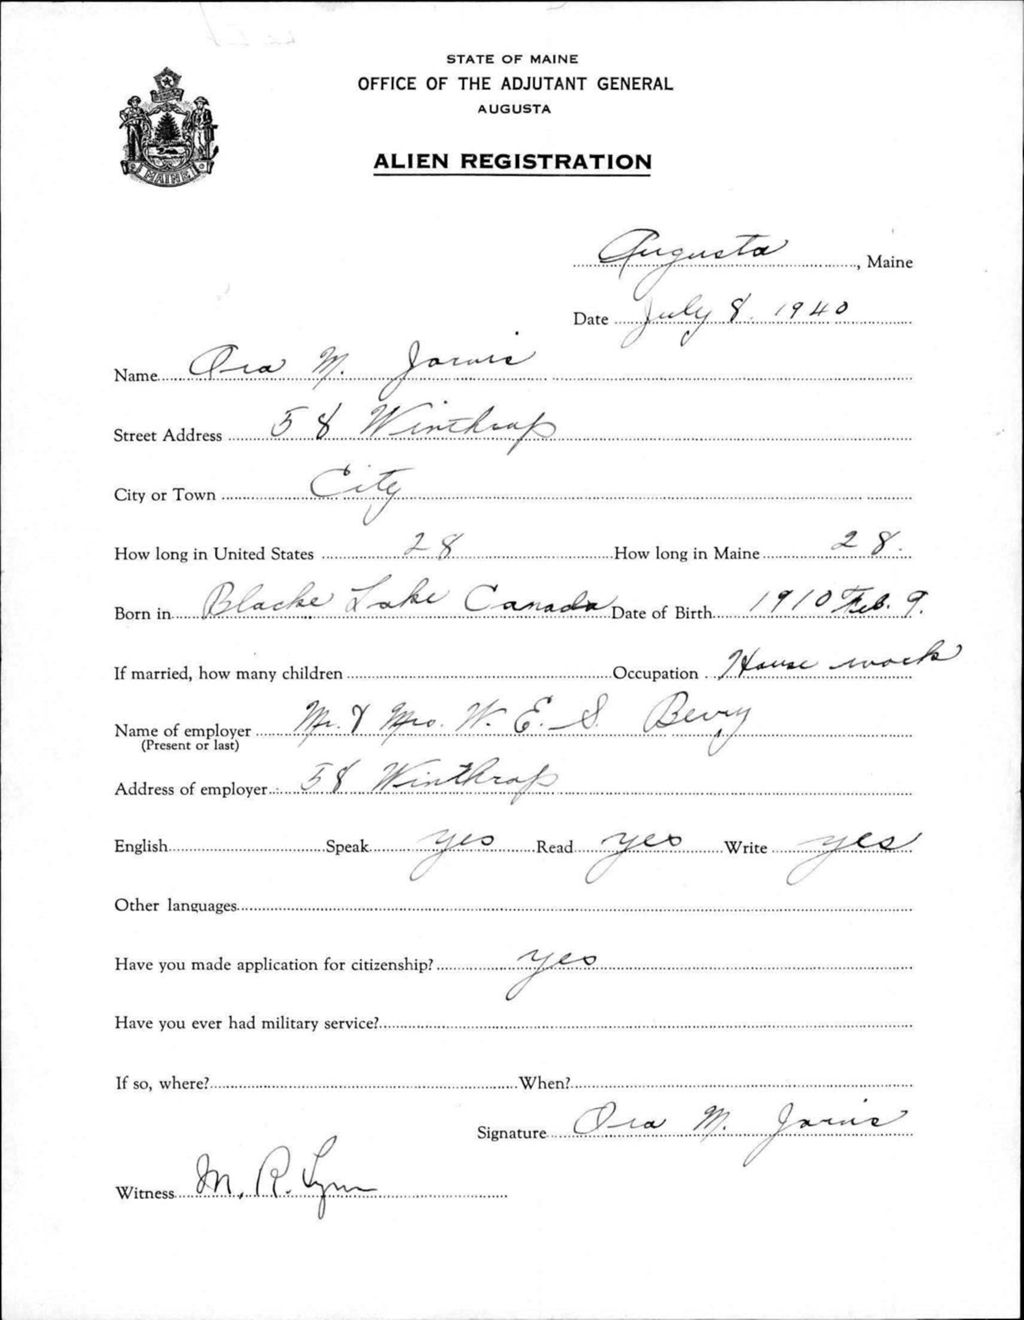 STATE OF MAINE
OFFICE OF THE ADJUTANT GENERAL
AUGUSTA
ALIEN REGISTRATION
MAINE
Augusta, Maine
Date July 8. 1940
Name Ora M. Jarvis
Street Address 58 Winthrop
City or Town City
How long in United States 28 How long in Maine 28.
Born in Blacke Lake Canada Date of Birth 1910 Feb. 9.
If married, how many children Occupation House work
Name of employer Mr. & Mrs. W. E. S. Berry
(Present or last)
Address of employer 58 Winthrop
English Speak yes Read yes Write yes
Other languages
Have you made application for citizenship? yes
Have you ever had military service?
If so, where? When?
Signature Ora M. Jarvis
Witness M. R. Lynn